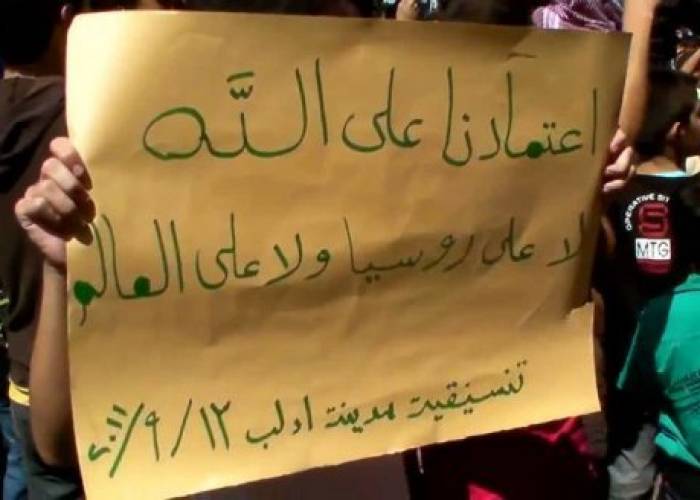 اعتمادنا على الله
لا على روسيا ولا على العالم
تنسيقية مدينة ادلب ١٢/٩/٢٠١١
OPERATIVE SIT
S
MTG